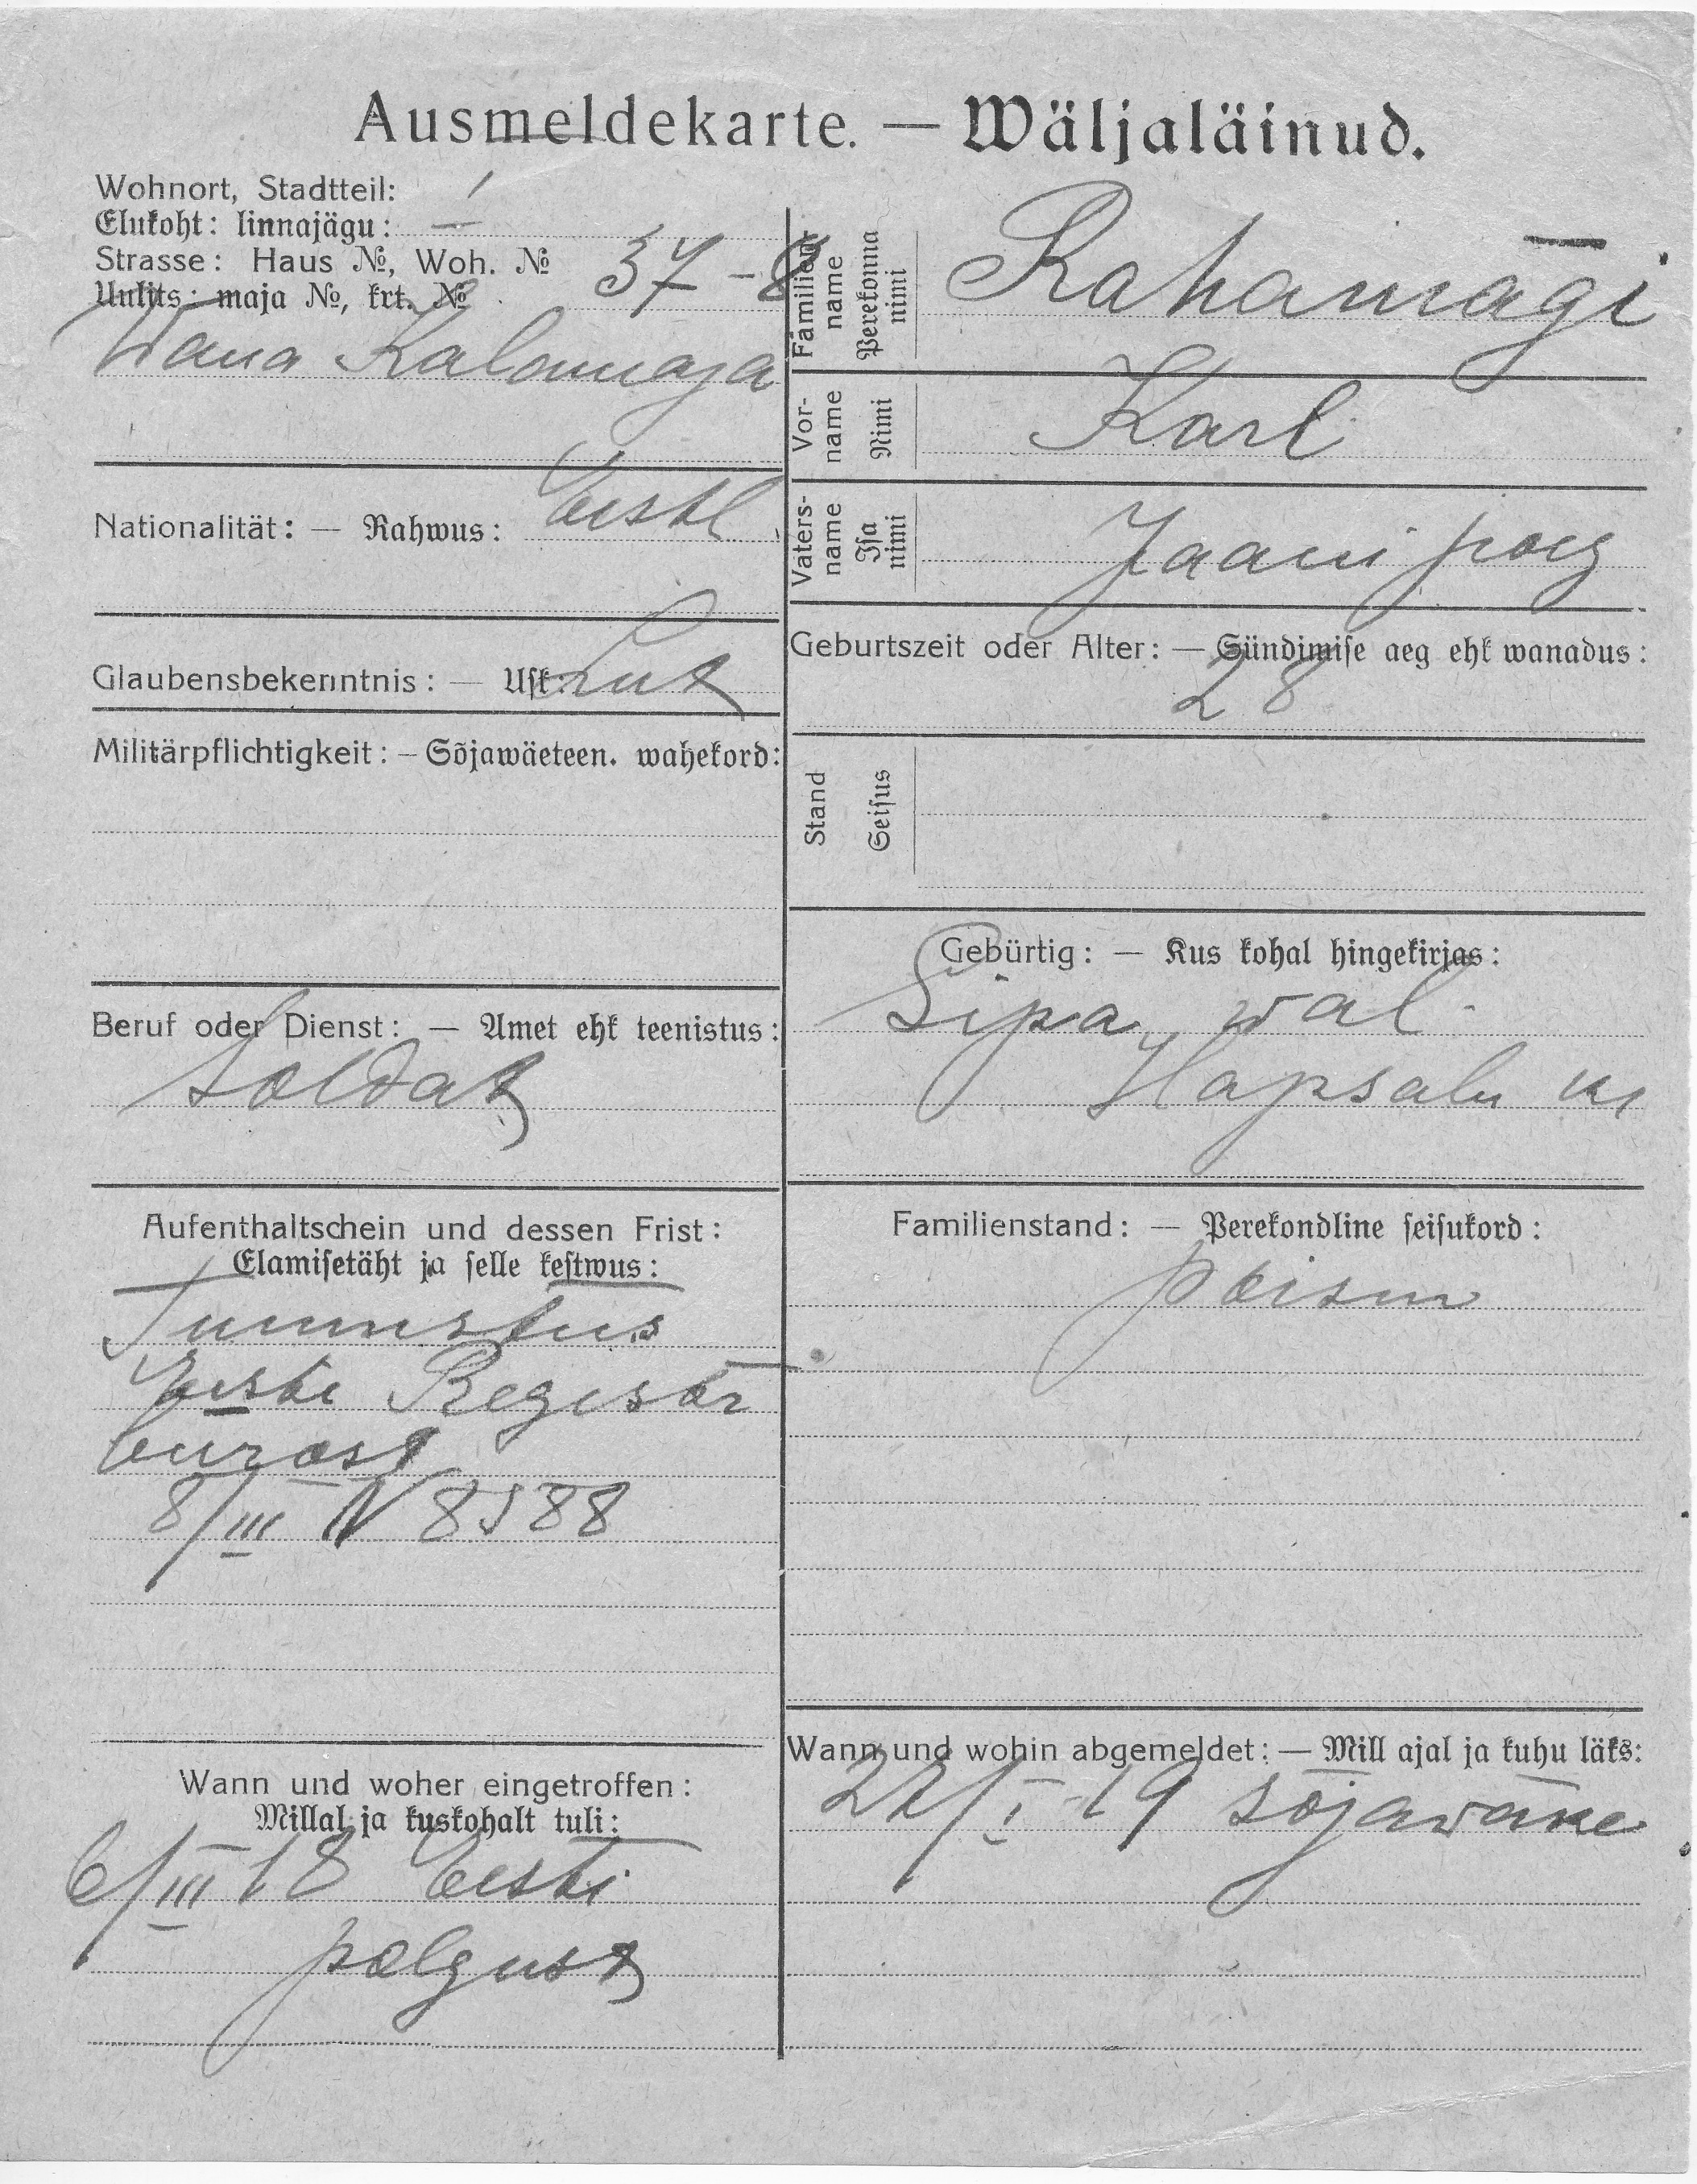 Ausmeldekarte. — Wäljaläinud.
Wohnort, Stadtteil:
Elukoht: linnajägu: I
Strasse: Haus №, Woh. №
Uulits: maja №, krt. № 37-8
Wana Kalamaja
Nationalität: — Rahwus: Eestl
Glaubensbekenntnis: — Usk: Lut
Militärpflichtigkeit: — Sõjawäeteen. wahekord:
Beruf oder Dienst: — Amet ehk teenistus:
Soldat
Aufenthaltschein und dessen Frist:
Elamisetäht ja selle kestwus:
Tunnistus
Eesti Registr
burost
8/III N 8588
Wann und woher eingetroffen:
Millal ja kuskohalt tuli:
6/III 18 Eesti
polgust
Familien-name Perekonna nimi
Rahamägi
Vor-name Nimi
Karl
Vaters-name Isa nimi
Jaani poeg
Geburtszeit oder Alter: — Sündimise aeg ehk wanadus:
28
Stand Seisus
Gebürtig: — Kus kohal hingekirjas:
Sipa wal.
Hapsalu
Familienstand: — Perekondline seisukord:
poism
Wann und wohin abgemeldet: — Mill ajal ja kuhu läks:
I-19 sõjawäke